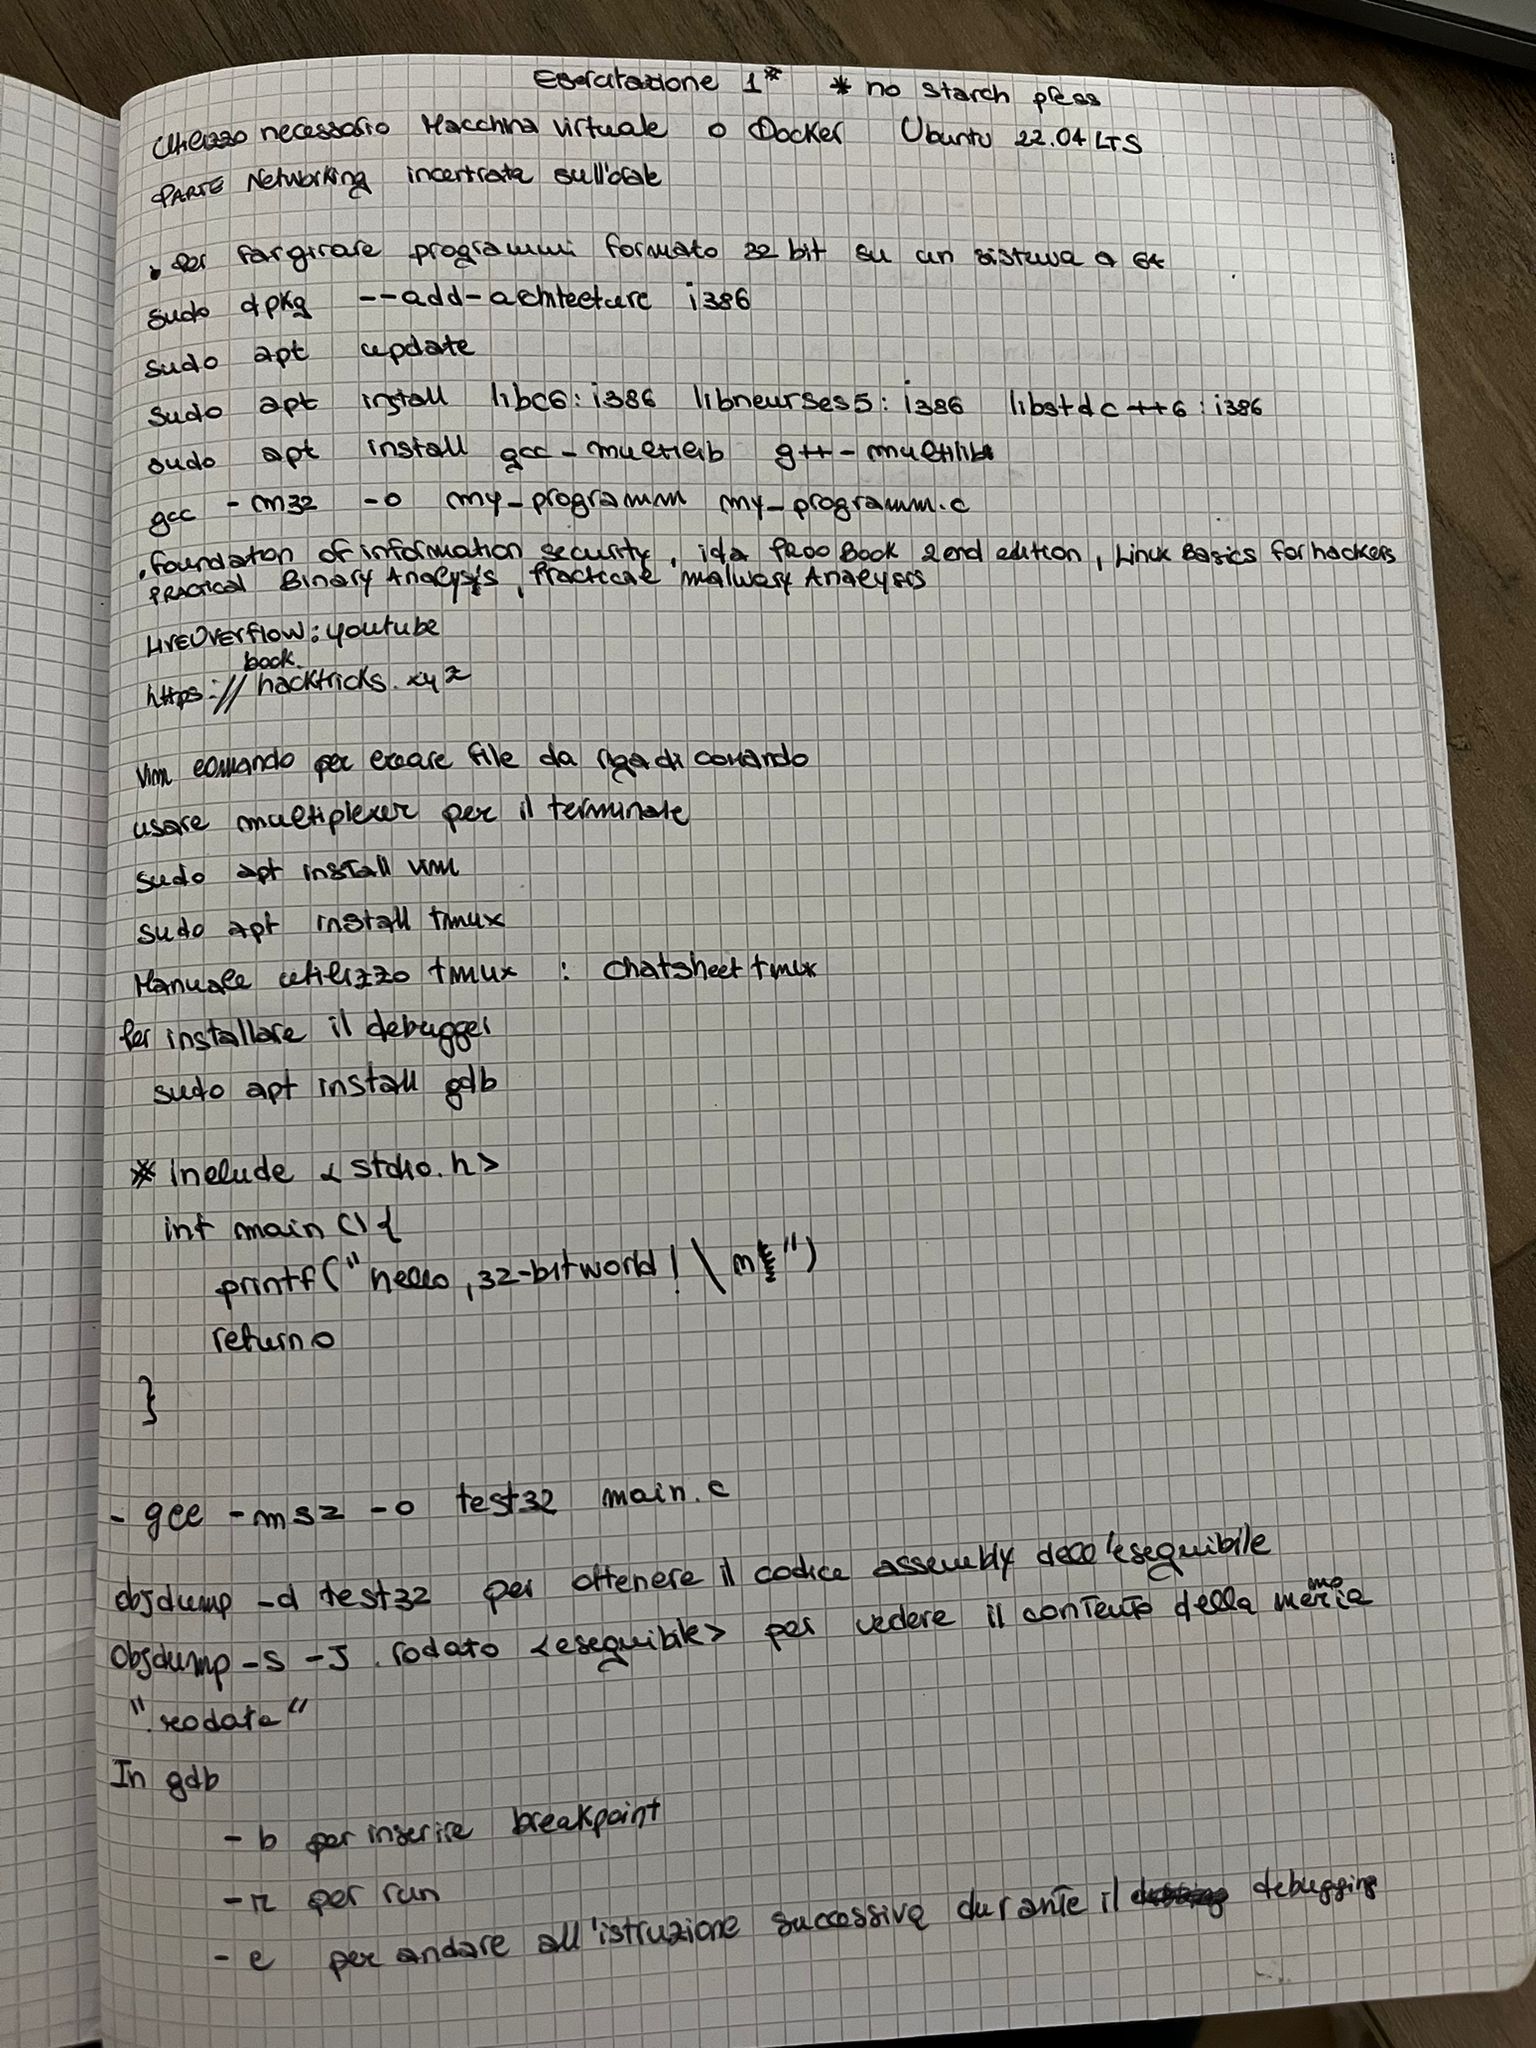 Esercitazione 1* * no starch press
Utilizzo necessario Macchina virtuale o Docker Ubuntu 22.04 LTS
PARTE Networking incentrata sull'orale
. Per far girare programmi formato 32 bit su un sistema a 64
sudo dpkg --add-achitecture i386
sudo apt update
sudo apt install libc6:i386 libncurses5:i386 libstdc++6:i386
sudo apt install gcc-multilib g++-multilib
gcc -m32 -o my_programm my_programm.c
. foundation of information security, ida pro Book 2end edition, Linux Basics for hackers
PRACTICAL Binary Analysis, Practical malware Analysis
LIVEOVERflow: youtube
book.
https:// hacktricks.xyz
Vim comando per creare file da riga di comando
usare multiplexer per il terminale
sudo apt install vim
sudo apt install tmux
Manuale utilizzo tmux : chatsheet tmux
Per installare il debugger
sudo apt install gdb
* include <stdio.h>
int main () {
printf("hello, 32-bit world! \n")
return 0
}
- gcc -m32 -o test32 main.c
objdump -d test32 per ottenere il codice assembly dell'eseguibile
Objdump -s -J .rodato <eseguibile> per vedere il contenuto della memoria
".rodata"
In gdb
- b per inserire breakpoint
- r per run
- c per andare all'istruzione successiva durante il debugging